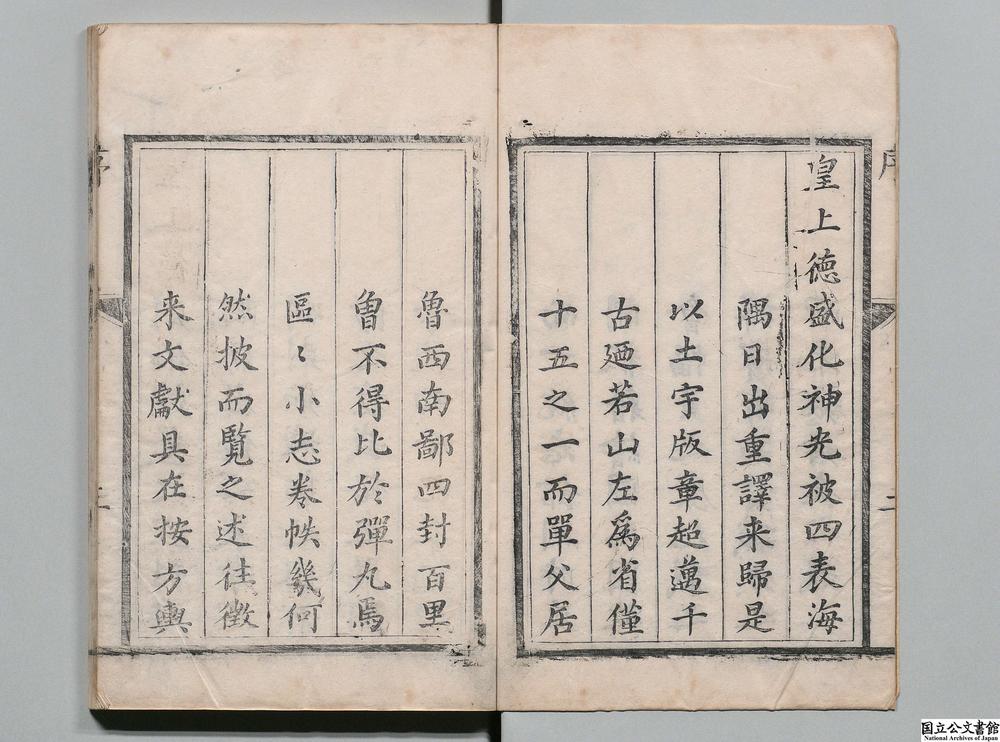 皇上德盛化神光被四表海
隅日出重譯来歸是
以土宇版章超邁千
古廼若山左爲省僅
十五之一而單父居
魯西南鄙四封百里
曾不得比於彈丸焉
區〻小志卷帙幾何
然披而覽之述往徴
来文獻具在按方輿
序
二
国立公文書館
National Archives of Japan